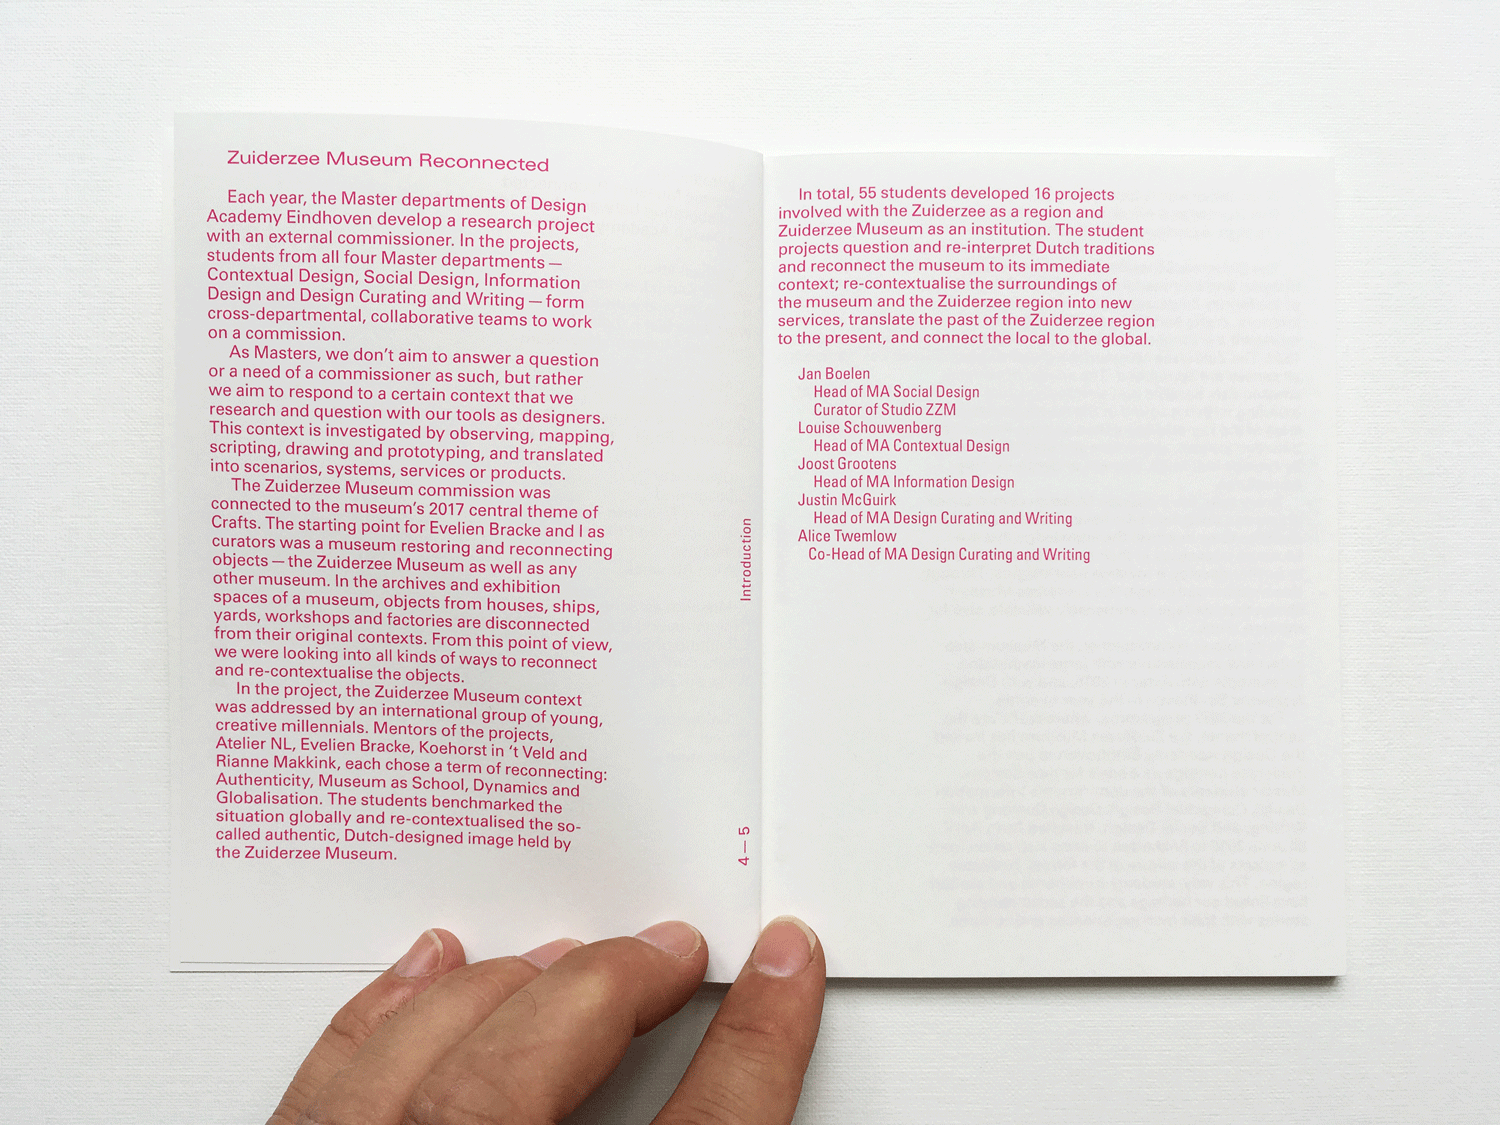 Zuiderzee Museum Reconnected
Each year, the Master departments of Design
Academy Eindhoven develop a research project
with an external commissioner. In the projects,
students from all four Master departments —
Contextual Design, Social Design, Information
Design and Design Curating and Writing — form
cross-departmental, collaborative teams to work
on a commission.
As Masters, we don't aim to answer a question
or a need of a commissioner as such, but rather
we aim to respond to a certain context that we
research and question with our tools as designers.
This context is investigated by observing, mapping,
scripting, drawing and prototyping, and translated
into scenarios, systems, services or products.
The Zuiderzee Museum commission was
connected to the museum's 2017 central theme of
Crafts. The starting point for Evelien Bracke and I as
curators was a museum restoring and reconnecting
objects — the Zuiderzee Museum as well as any
other museum. In the archives and exhibition
spaces of a museum, objects from houses, ships,
yards, workshops and factories are disconnected
from their original contexts. From this point of view,
we were looking into all kinds of ways to reconnect
and re-contextualise the objects.
In the project, the Zuiderzee Museum context
was addressed by an international group of young,
creative millennials. Mentors of the projects,
Atelier NL, Evelien Bracke, Koehorst in 't Veld and
Rianne Makkink, each chose a term of reconnecting:
Authenticity, Museum as School, Dynamics and
Globalisation. The students benchmarked the
situation globally and re-contextualised the so-
called authentic, Dutch-designed image held by
the Zuiderzee Museum.
Introduction
4 — 5
In total, 55 students developed 16 projects
involved with the Zuiderzee as a region and
Zuiderzee Museum as an institution. The student
projects question and re-interpret Dutch traditions
and reconnect the museum to its immediate
context; re-contextualise the surroundings of
the museum and the Zuiderzee region into new
services, translate the past of the Zuiderzee region
to the present, and connect the local to the global.
Jan Boelen
Head of MA Social Design
Curator of Studio ZZM
Louise Schouwenberg
Head of MA Contextual Design
Joost Grootens
Head of MA Information Design
Justin McGuirk
Head of MA Design Curating and Writing
Alice Twemlow
Co-Head of MA Design Curating and Writing